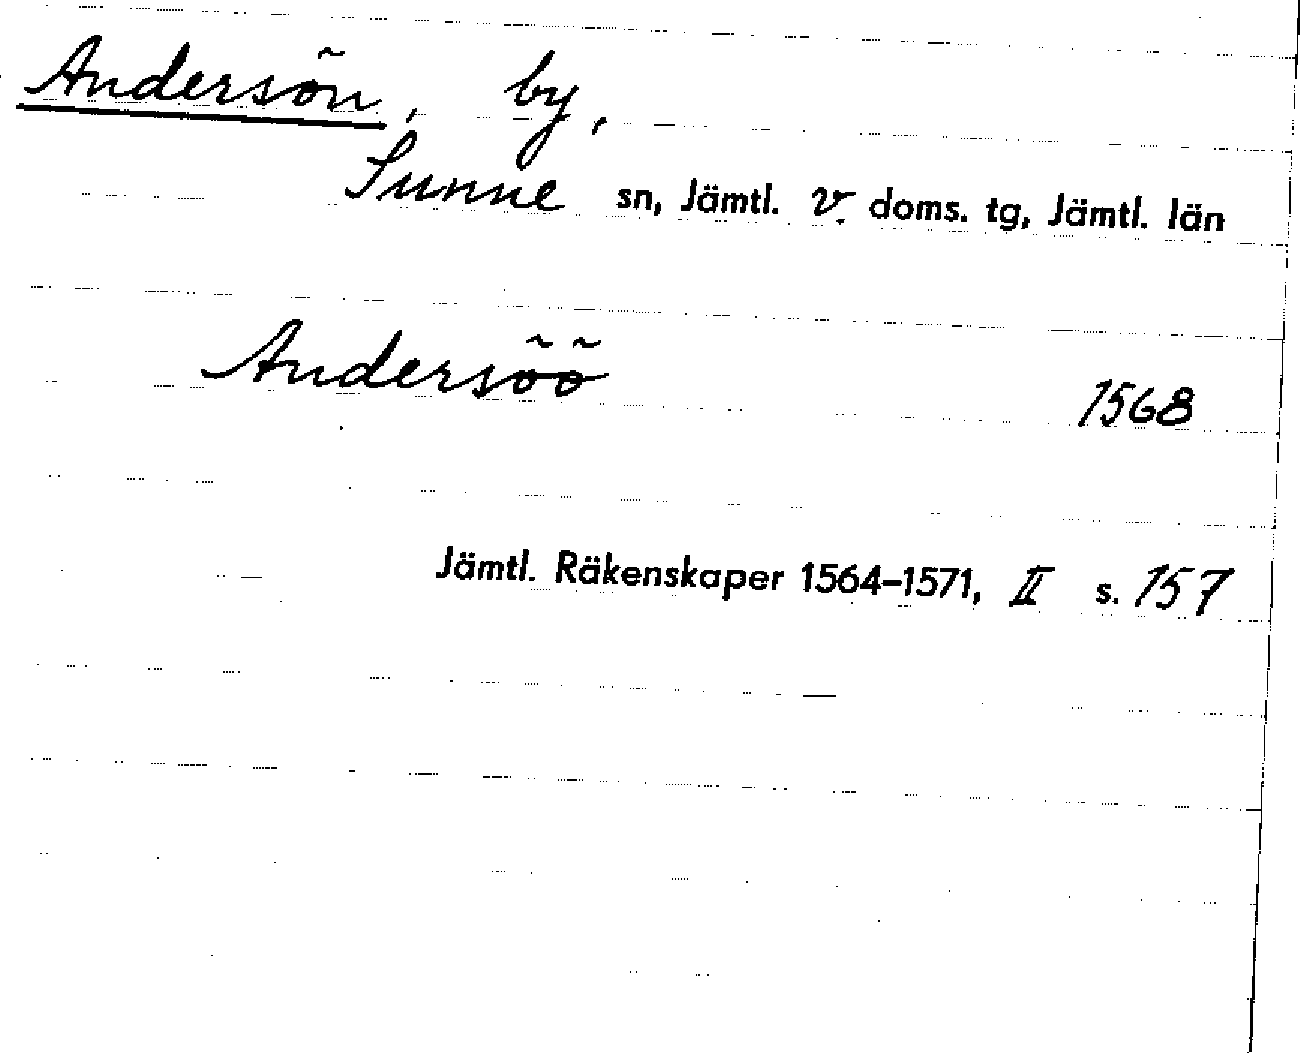 Andersön, by,
Sunne sn, Jämtl. v. doms. tg, Jämtl. län
Andersöö 1568
Jämtl. Räkenskaper 1564–1571, II s. 157